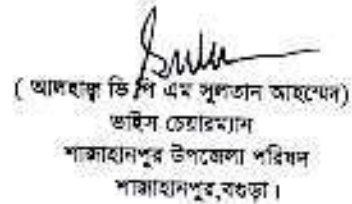 ( আলহাজ্ব ভি পি এম সুলতান আহম্মেদ)
ভাইস চেয়ারম্যান
শাজাহানপুর উপজেলা পরিষদ
শাজাহানপুর,বগুড়া।